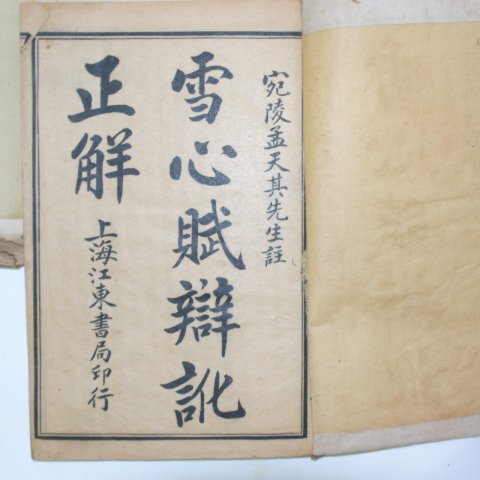 宛陵孟天其先生註
雪心賦辯訛
正解
上海江東書局印行